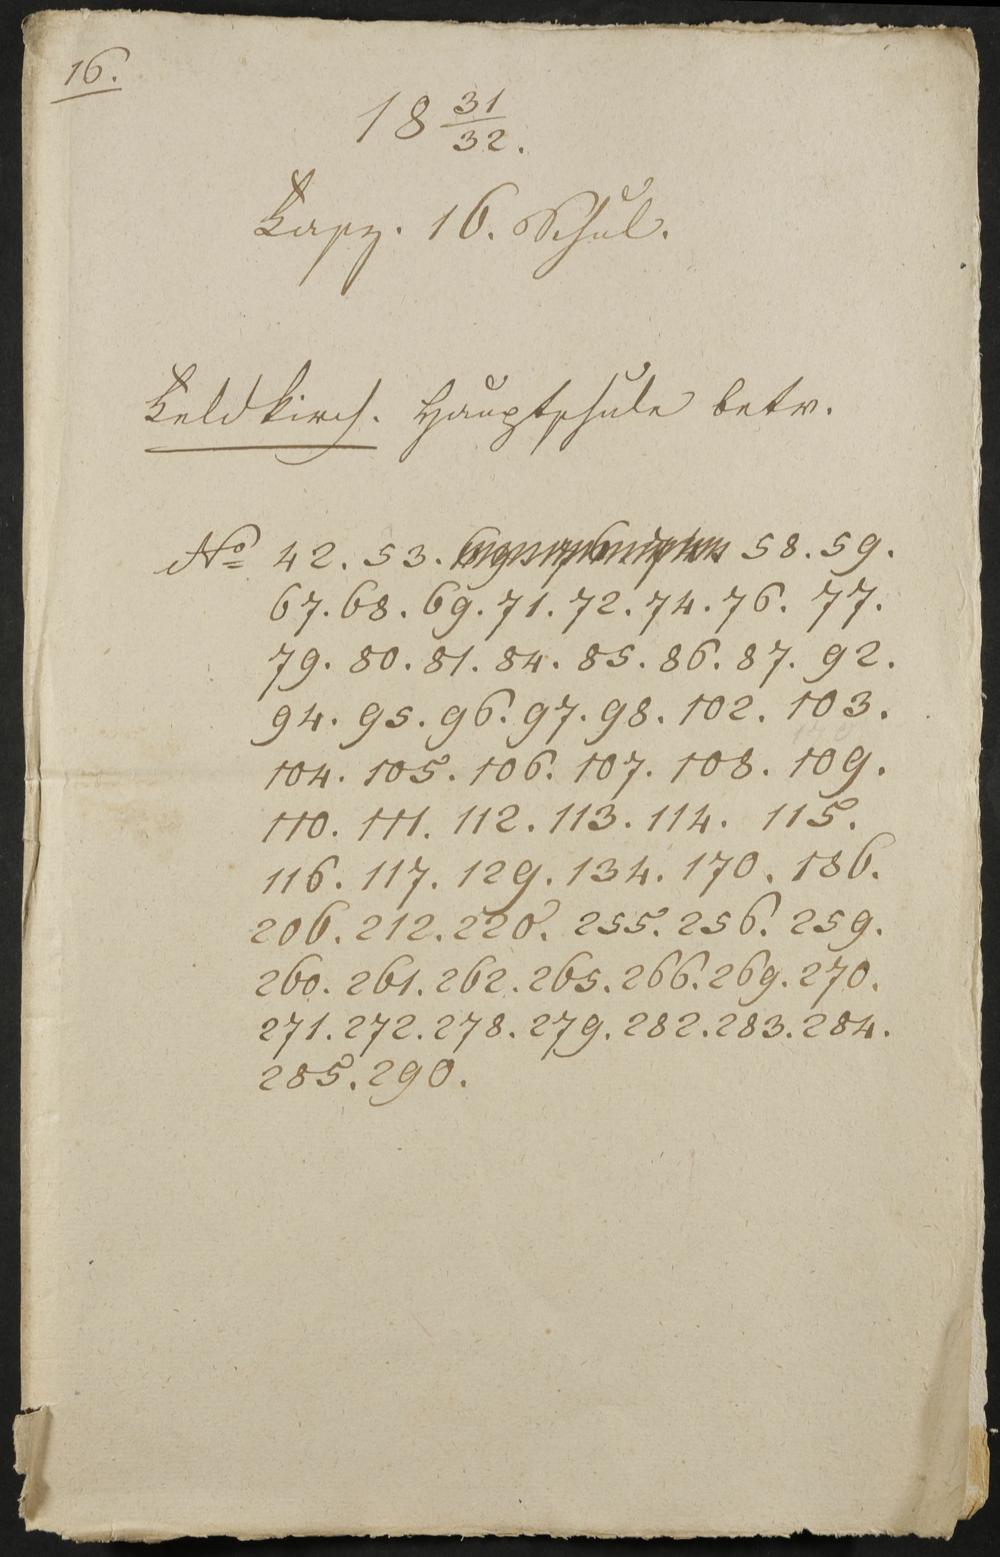 16.
18 31/32.
Fasz. 16. Schul.
Feldkirch. Hauptschule betr.
No 42. 53. 58. 59.
67. 68. 69. 71. 72. 74. 76. 77.
79. 80. 81. 84. 85. 86. 87. 92.
94. 95. 96. 97. 98. 102. 103.
104. 105. 106. 107. 108. 109.
110. 111. 112. 113. 114. 115.
116. 117. 129. 134. 170. 186.
206. 212. 220. 255. 256. 259.
260. 261. 262. 265. 266. 269. 270.
271. 272. 278. 279. 282. 283. 284.
285. 290.